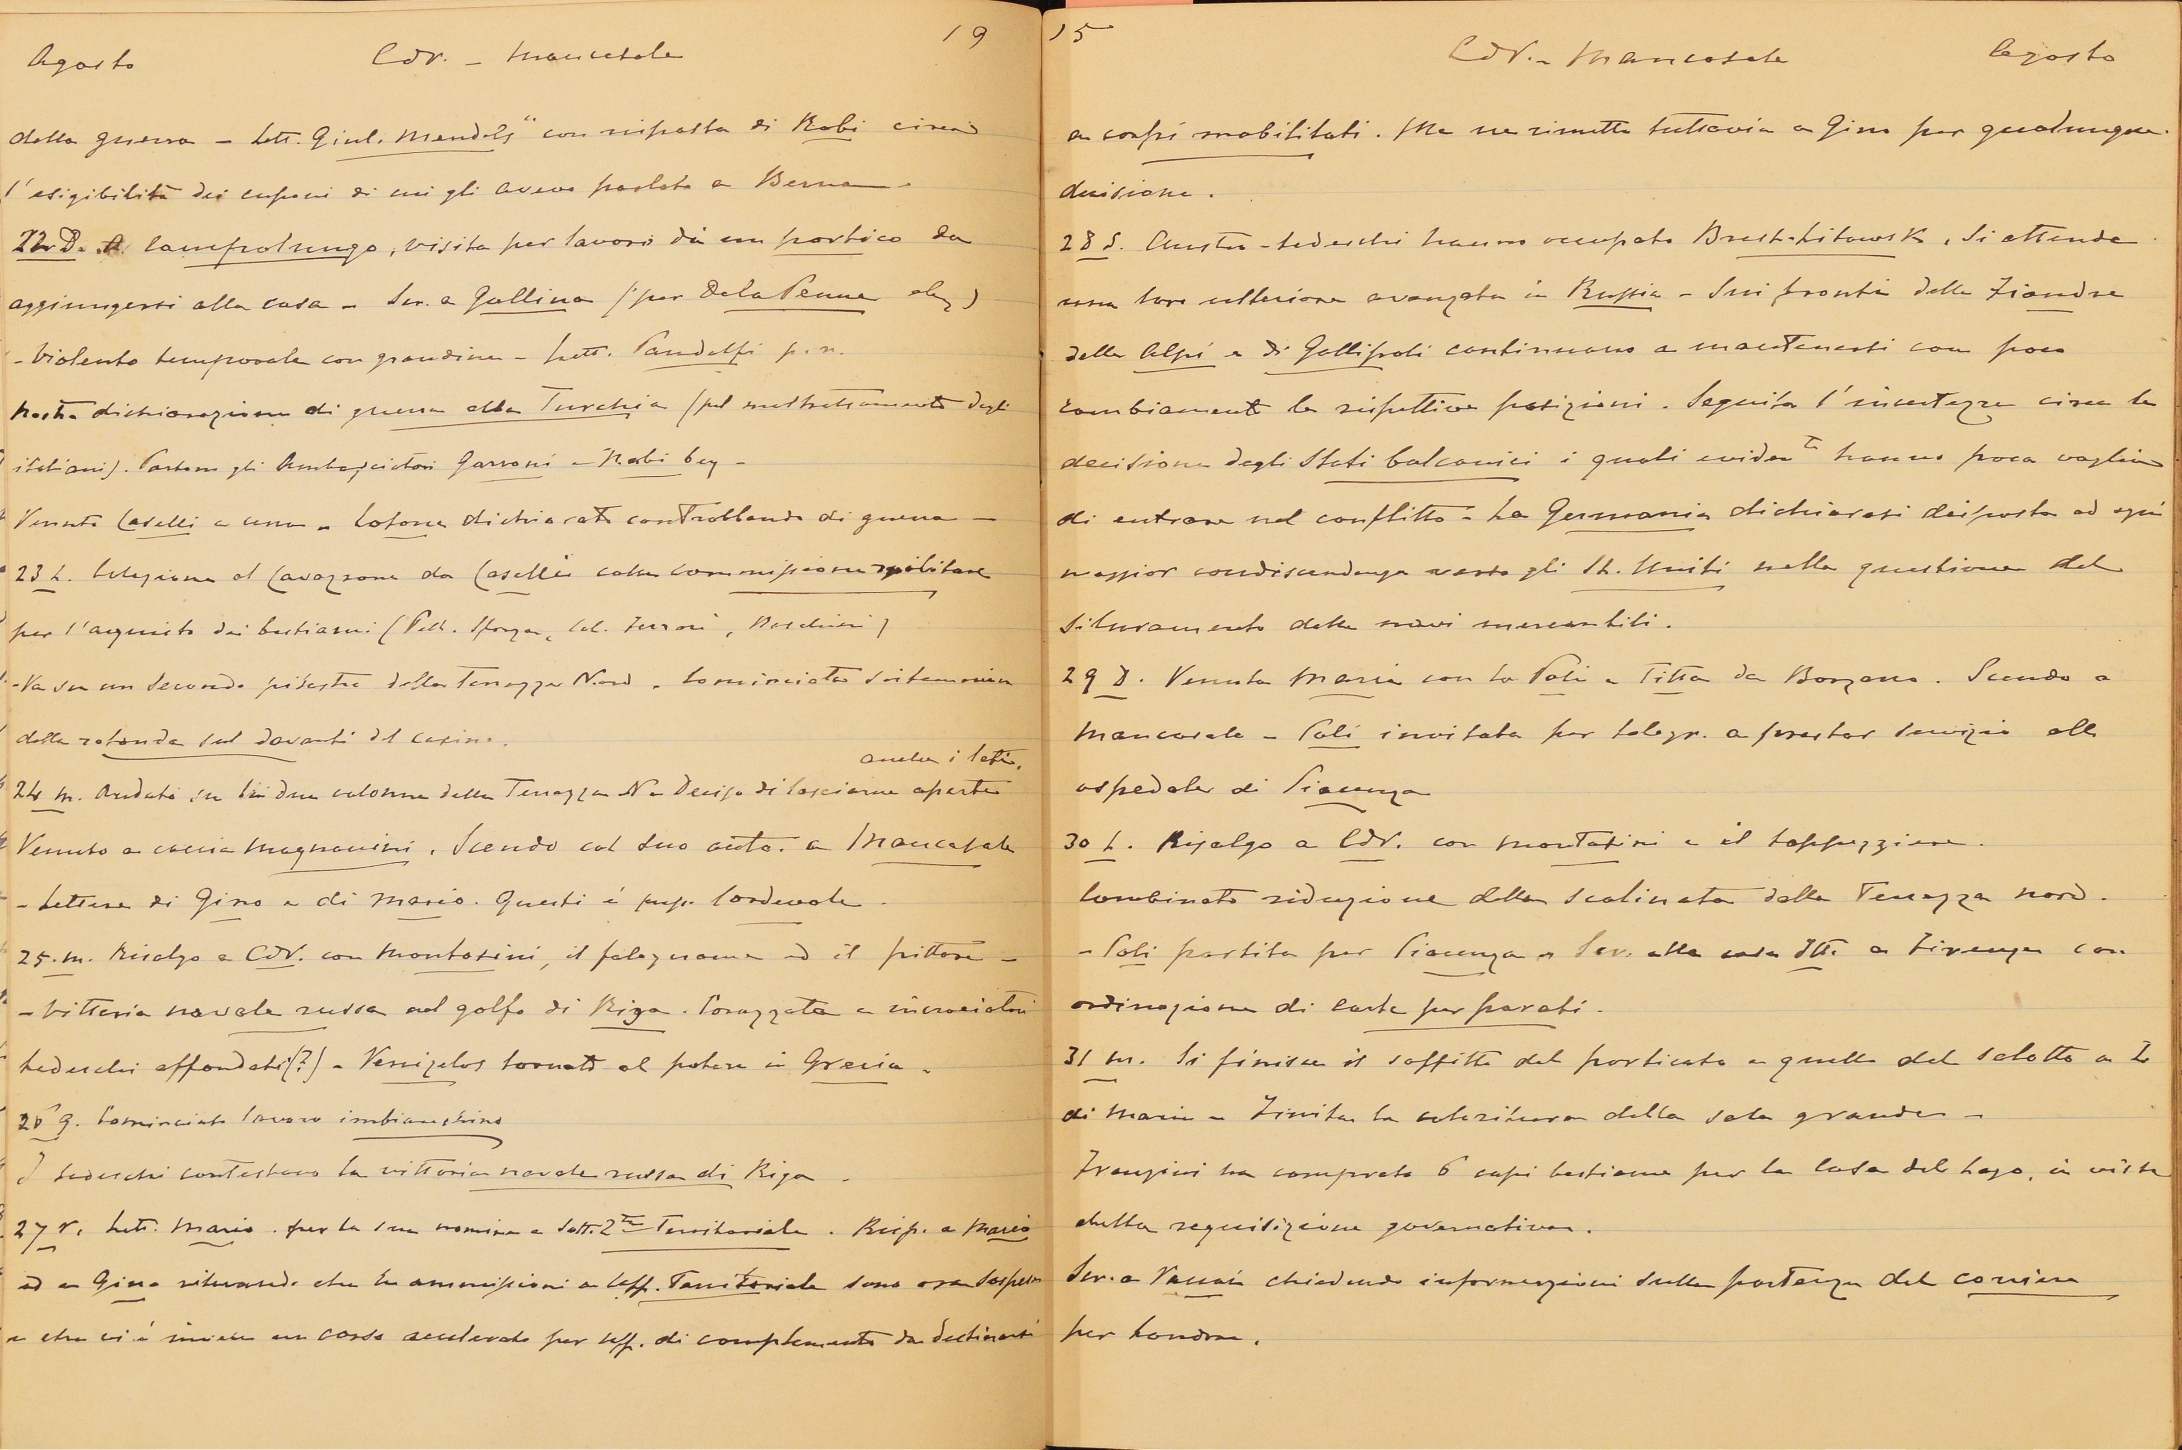 19
Agosto CdV. - Mancasale
della guerra - Lett. Giul. Mendels" con risposta di Robi circa
l'esigibilità dei cuponi di cui gli avevo parlato a Berna -
22 D. Campolungo, visita per lavori di un portico da
aggiungersi alla casa - Scr. a Gallina (per Dela Penne
- Violento temporale con grandine - Lett. Pandolfi p. n.
Nostra dichiarazione di guerra alla Turchia (pel maltrattamento degli
italiani). Partono gli Ambasciatori Garroni e Nabi bey -
Venuto Caselli a cena - Cotone dichiarato contrabbando di guerra -
23 L. Colazione al Cavazzone da Caselli colla commissione militare
per l'acquisto dei bestiami (Sforza, Col.
- Va su un secondo pilastro della Terrazza Nord. Cominciata
della rotonda sul davanti del casino.
anche i lati.
24 M. Andate su le due colonne della Terrazza N - Deciso di lasciarne aperti
Venuto a caccia Magnanini. Scendo col suo auto. a Mancasale
- Lettere di Gino e di Mario. Questi è Cordevole.
25. M. Risalgo a CdV. con Montasini, il falegname ed il pittore -
- Vittoria navale russa nel golfo di Riga. Corazzate e incrociatori
tedeschi affondati (?) - Venizelos tornato al potere in Grecia -
26 G. Cominciato lavoro imbianchino
I tedeschi contestano la vittoria navale russa di Riga -
27 V. Lett. Mario. per la sua nomina a Sott. Territoriale. Risp. a Mario
ed a Gino rilevando che le ammissioni a Uff. Territoriale sono ora sospese
e che vi è invece un corso accelerato per uff. di complemento da destinarsi
15
CdV. - Mancasale Agosto
a corpi mobilitati. Me ne rimetto tuttavia a Gino per qualunque
decisione.
28 S. Austro-tedeschi hanno occupato Brest-Litowsk. Si attende
una loro ulteriore avanzata in Russia - Sui fronti delle Fiandre
delle Alpi e di Gallipoli continuano a mantenersi con poco
cambiamento le rispettive posizioni. Seguita l'incertezza circa la
decisione degli Stati balcanici i quali evidente hanno poca voglia
di entrare nel conflitto - La Germania dichiarasi disposta ad ogni
maggior condiscendenza verso gli St. Uniti nella questione del
siluramento delle navi mercantili.
29 D. Venuta Maria con la Poli e Titta da Borzano. Scendo a
Mancasale - Poli invitata per telegr. a prestar servizio all
ospedale di Piacenza
30 L. Risalgo a CdV. con Montasini e il tappezziere.
Combinata riduzione della scalinata della Terrazza nord.
- Poli partita per Piacenza - Scr. alla casa a Firenze con
ordinazione di carte per parati.
31 M. Si finisce il soffitto del porticato e quello del salotto a
di Maria - Finita la coloritura della sala grande -
Franzini ha comprato 6 capi bestiame per la Casa del Lago, in vista
della requisizione governativa.
Scr. a chiedendo informazioni sulla partenza del corriere
per Londra.